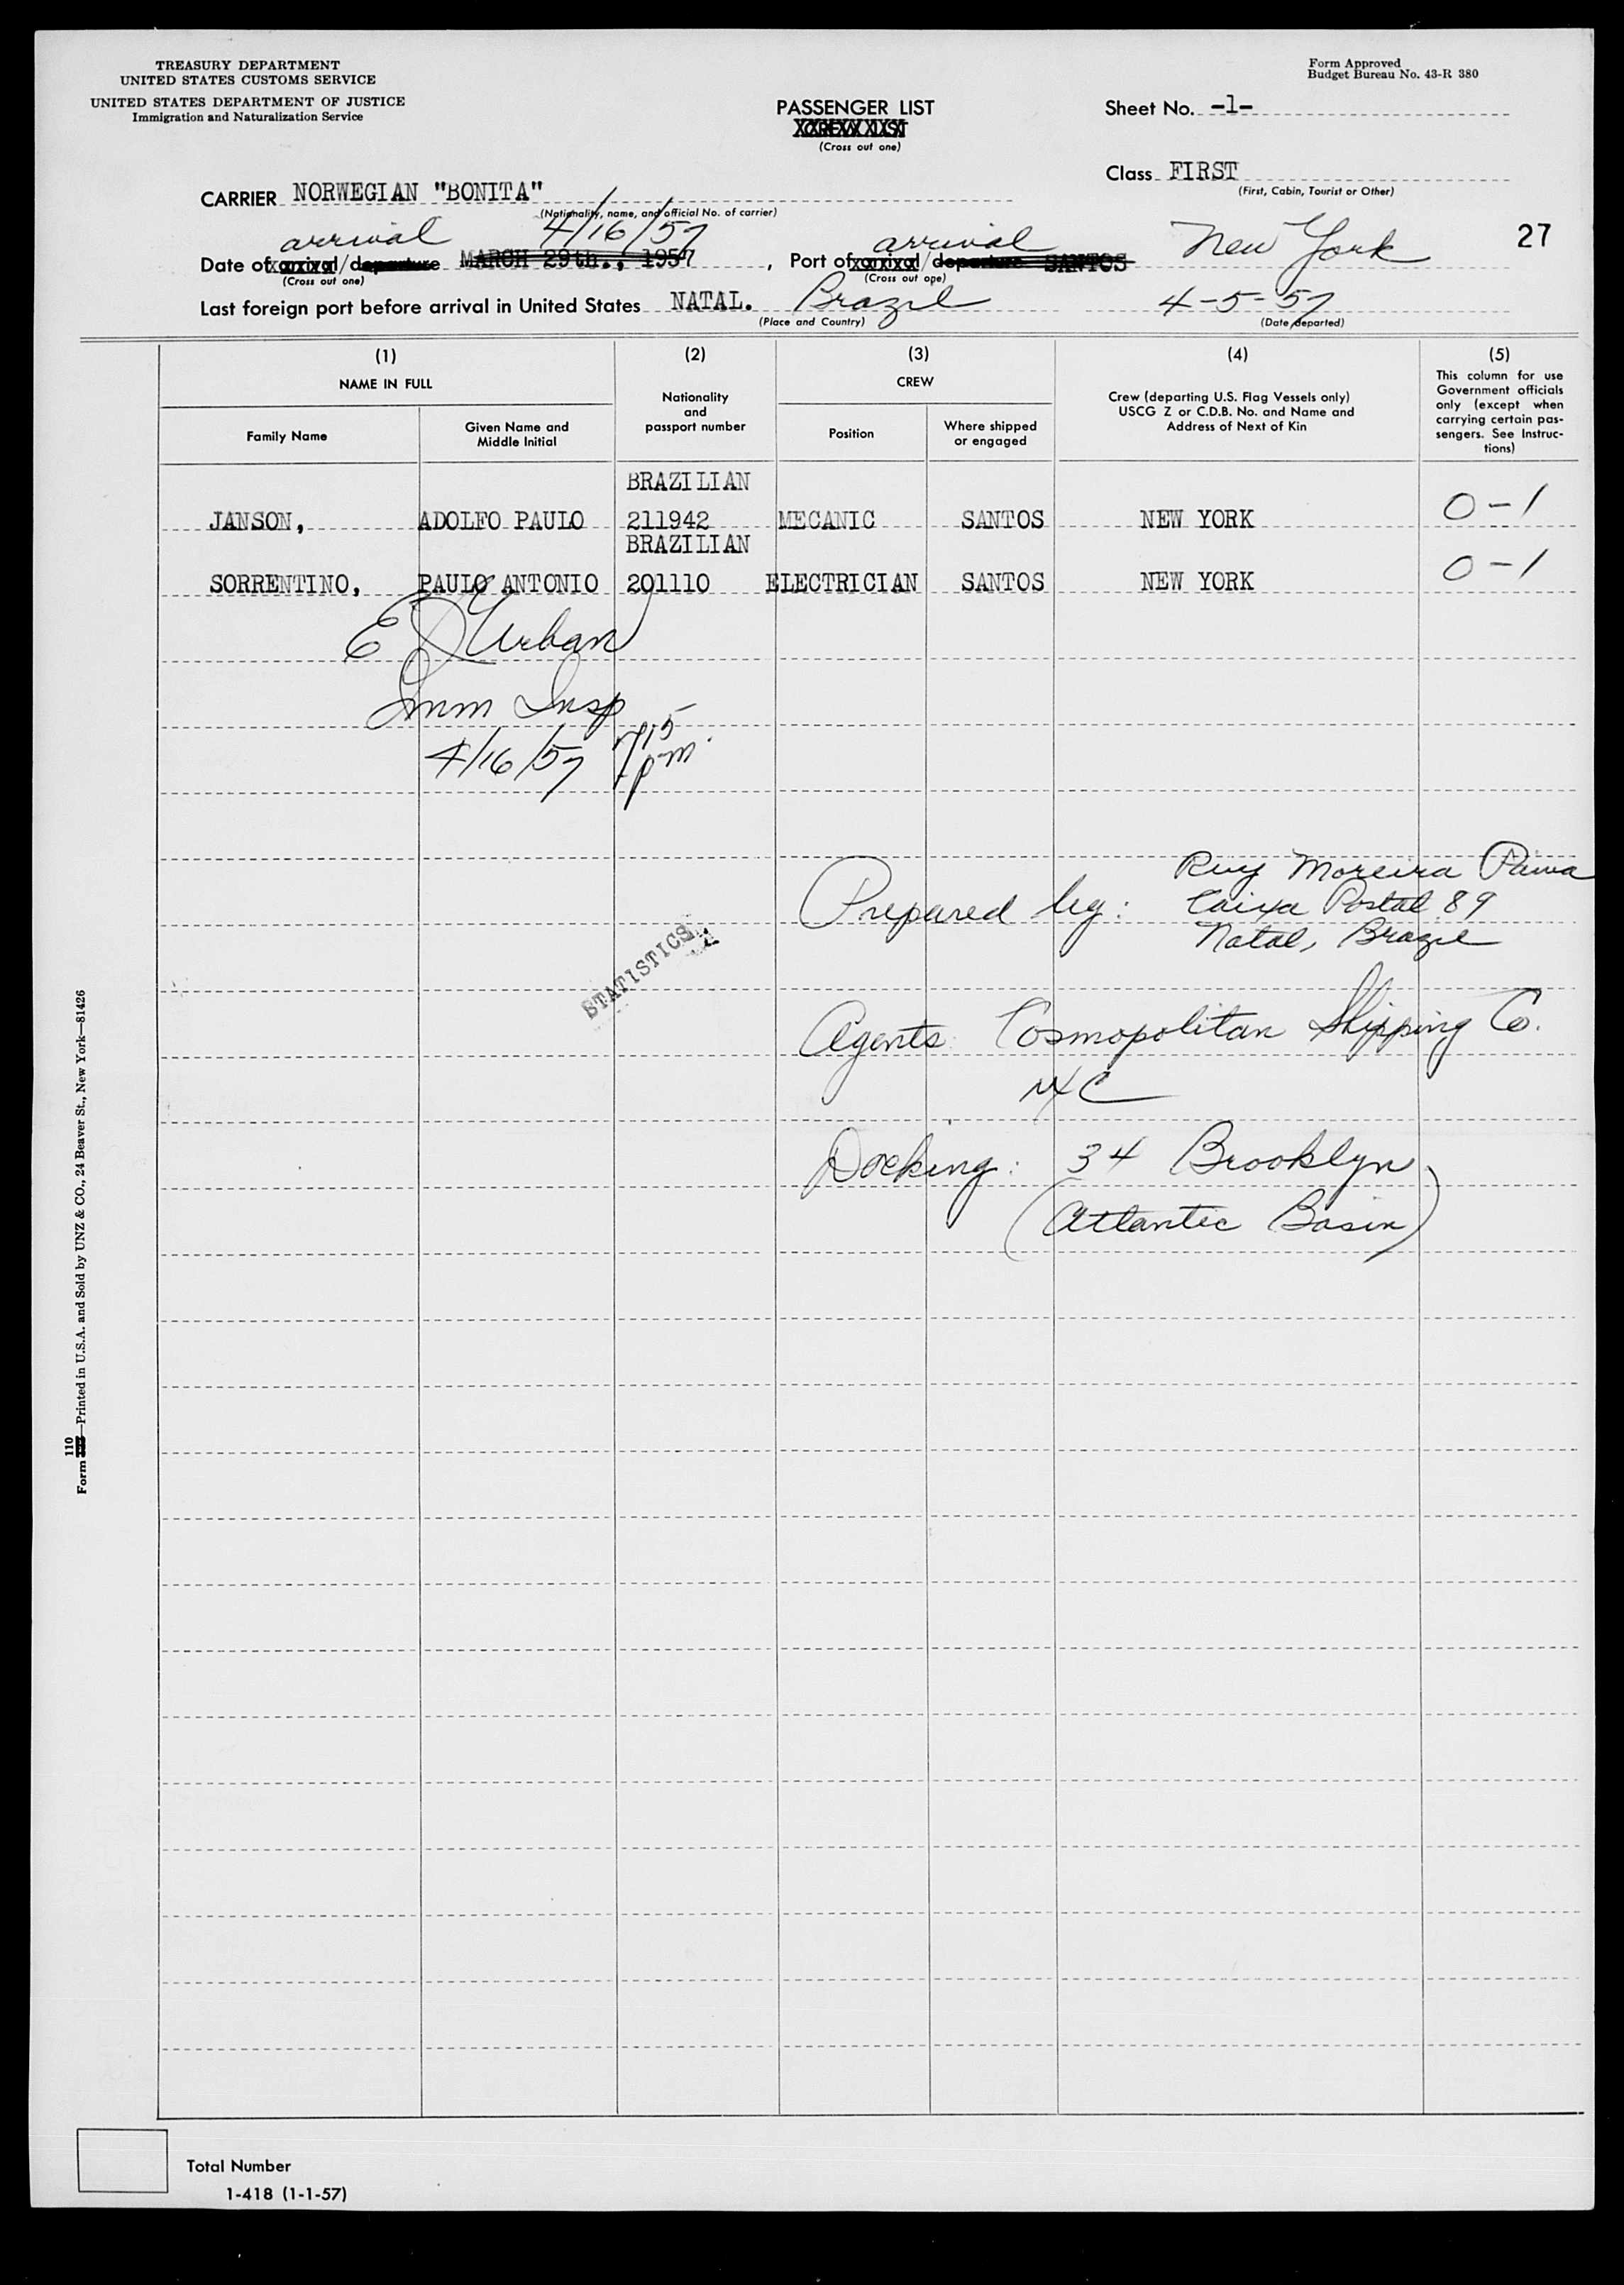 TREASURY DEPARTMENT
UNITED STATES CUSTOMS SERVICE
UNITED STATES DEPARTMENT OF JUSTICE
Immigration and Naturalization Service
Form Approved
Budget Bureau No. 43-R 380
PASSENGER LIST
CREW LIST
(Cross out one)
Sheet No. -1-
Class FIRST
(First, Cabin, Tourist or Other)
CARRIER NORWEGIAN "BONITA"
(Nationality, name, and official No. of carrier)
arrival 4/16/57 arrival New York 27
Date of arrival/departure MARCH 29th., 1957, Port of arrival/departure SANTOS
(Cross out one) (Cross out one)
Last foreign port before arrival in United States NATAL. Brazil 4-5-57
(Place and Country) (Date departed)
(1) (2) (3) (4) (5)
NAME IN FULL
Family Name
Given Name and
Middle Initial
Nationality
and
passport number
CREW
Position
Where shipped
or engaged
Crew (departing U.S. Flag Vessels only)
USCG Z or C.D.B. No. and Name and
Address of Next of Kin
This column for use
Government officials
only (except when
carrying certain pas-
sengers. See Instruc-
tions)
BRAZILIAN
JANSON, ADOLFO PAULO 211942 MECANIC SANTOS NEW YORK 0-1
BRAZILIAN
SORRENTINO, PAULO ANTONIO 201110 ELECTRICIAN SANTOS NEW YORK 0-1
E J Urban
Imm Insp
4/16/57 715 pm
Prepared by: Ruy Moreira Paiva
Caixa Postal 89
Natal, Brazil
STATISTICS
Agents: Cosmopolitan Shipping Co.
NYC
Docking: 34 Brooklyn
(Atlantic Basin)
110
Form —Printed in U.S.A. and Sold by UNZ & CO., 24 Beaver St., New York—81426
Total Number
1-418 (1-1-57)